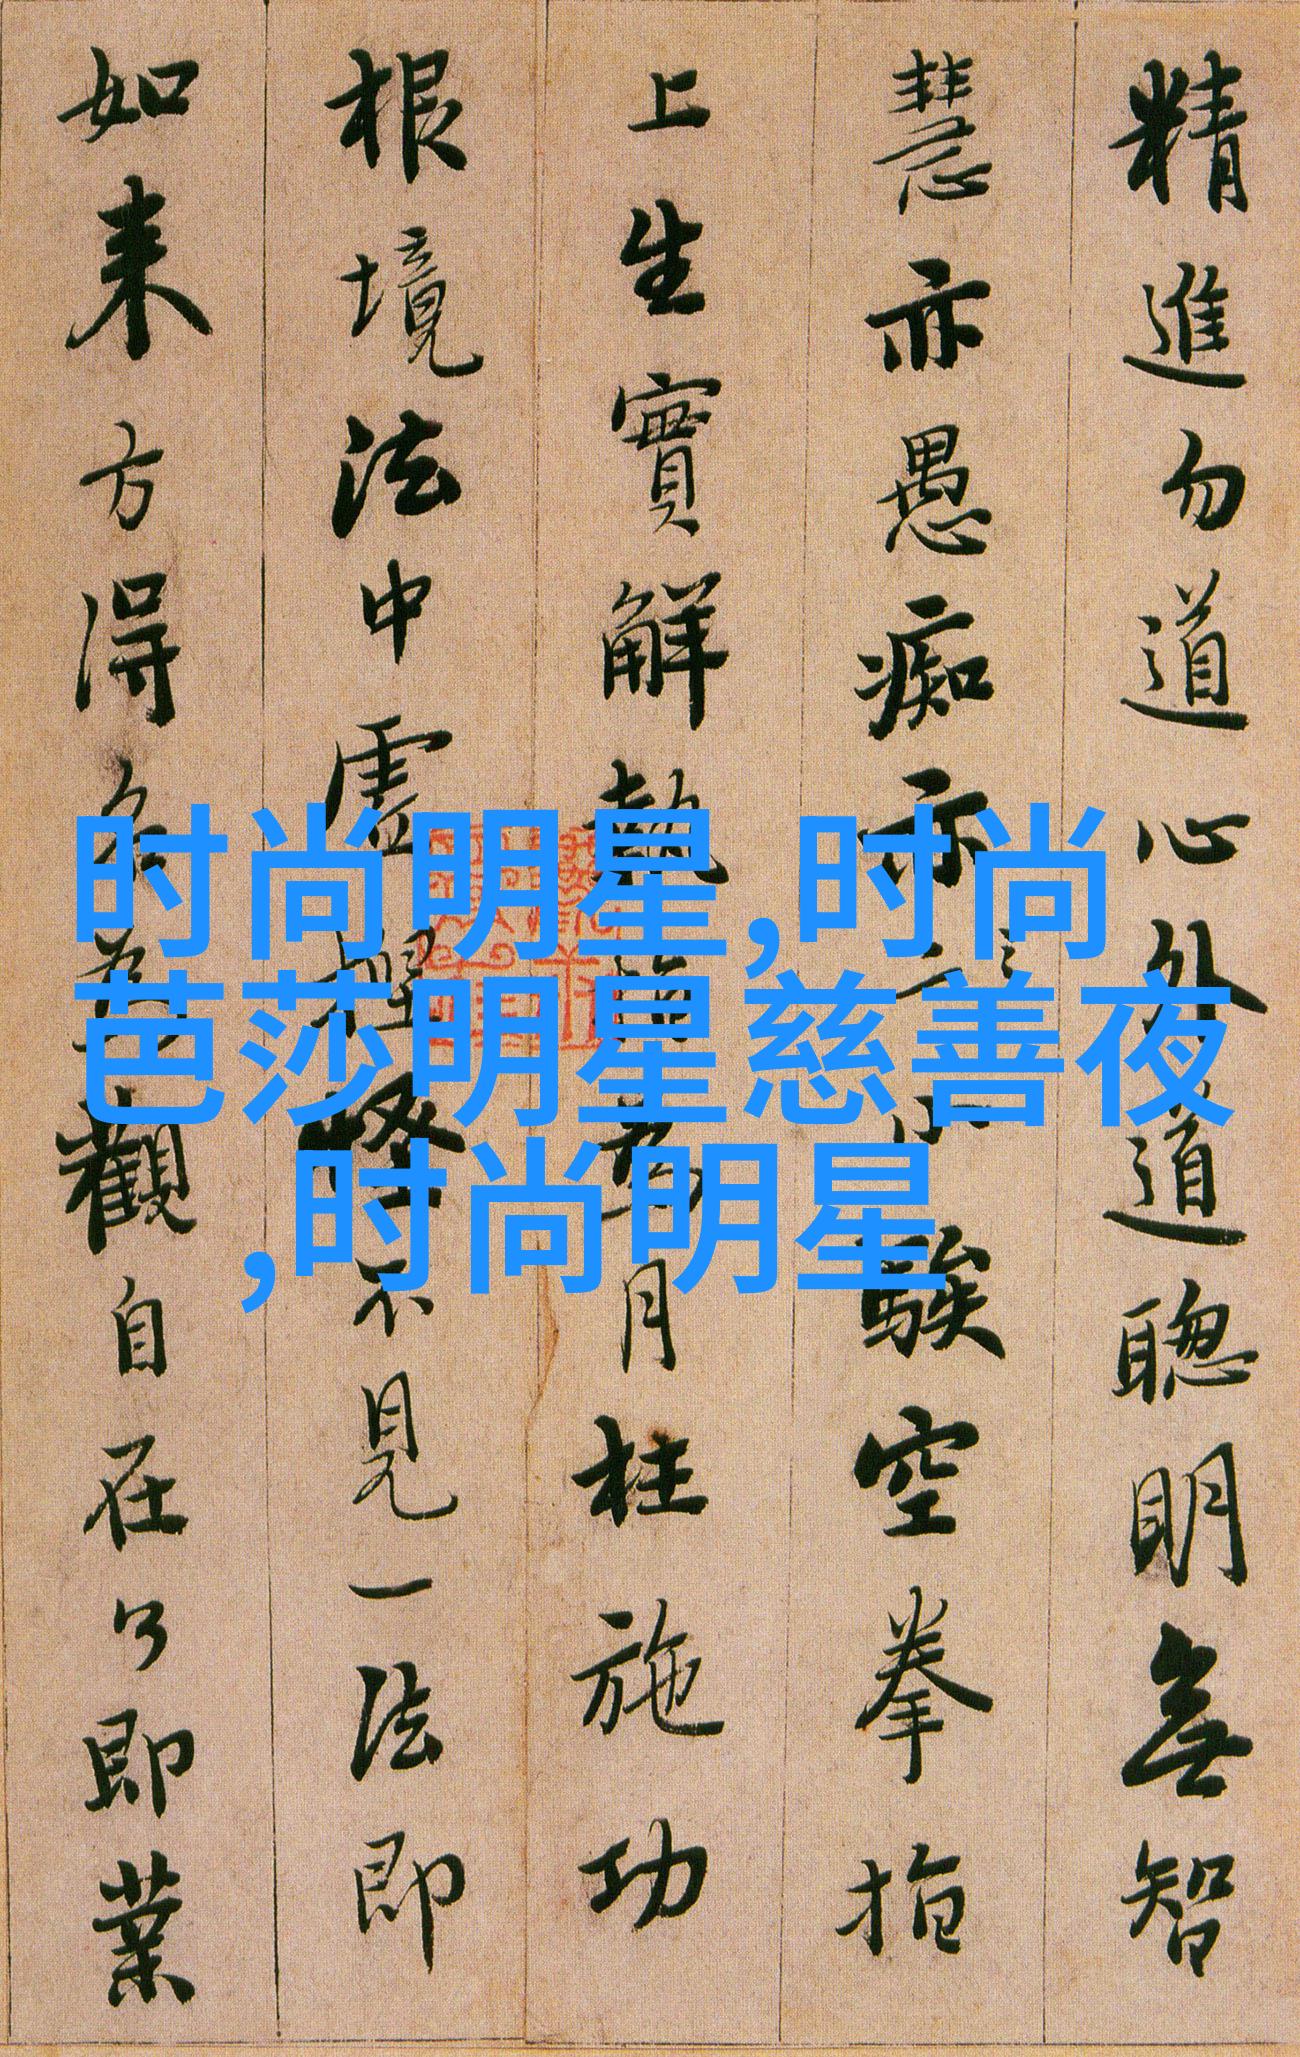 精進勿道心外道聰明無智
慧亦愚痴亦小騃空拳指
上生實解執指為月枉施功
根境法中虛捏怪不見一法即
如来方得名為觀自在了即業
时尚明星,时尚
芭莎明星慈善夜
,时尚明星